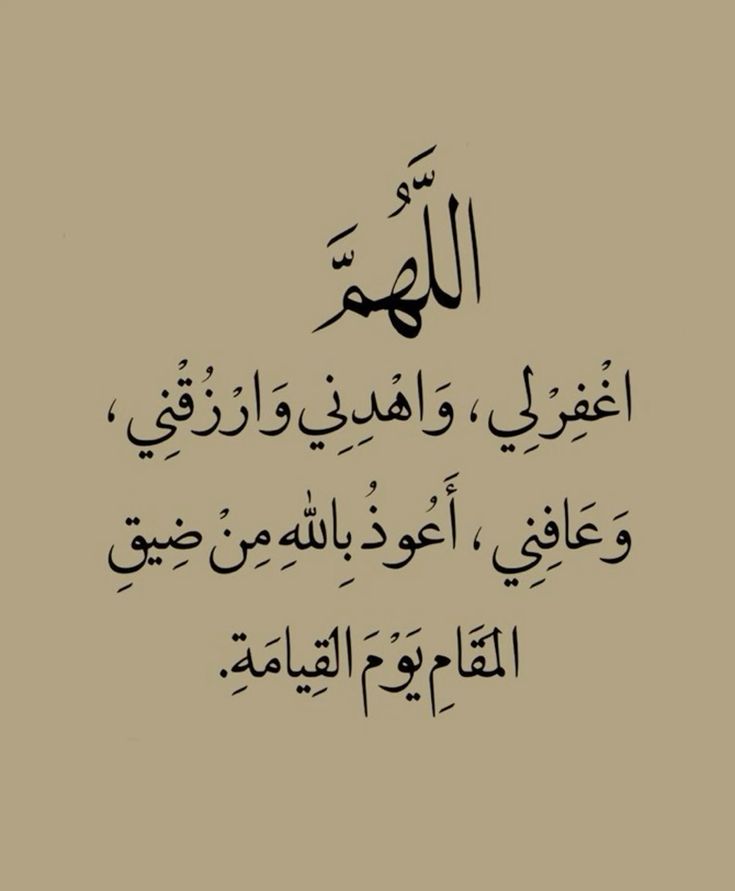 اللَّهُمَّ
اغْفِرْ لِي، وَاهْدِنِي وَارْزُقْنِي،
وَعَافِنِي، أَعُوذُ بِاللهِ مِنْ ضِيقِ
المَقَامِ يَوْمَ القِيامَةِ.